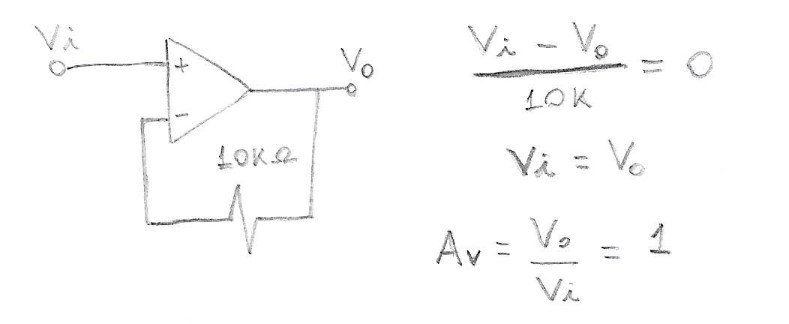 Vi
+
-
Vo
10KΩ
Vi - Vo
10K
= 0
Vi = Vo
Av = Vo
Vi
= 1